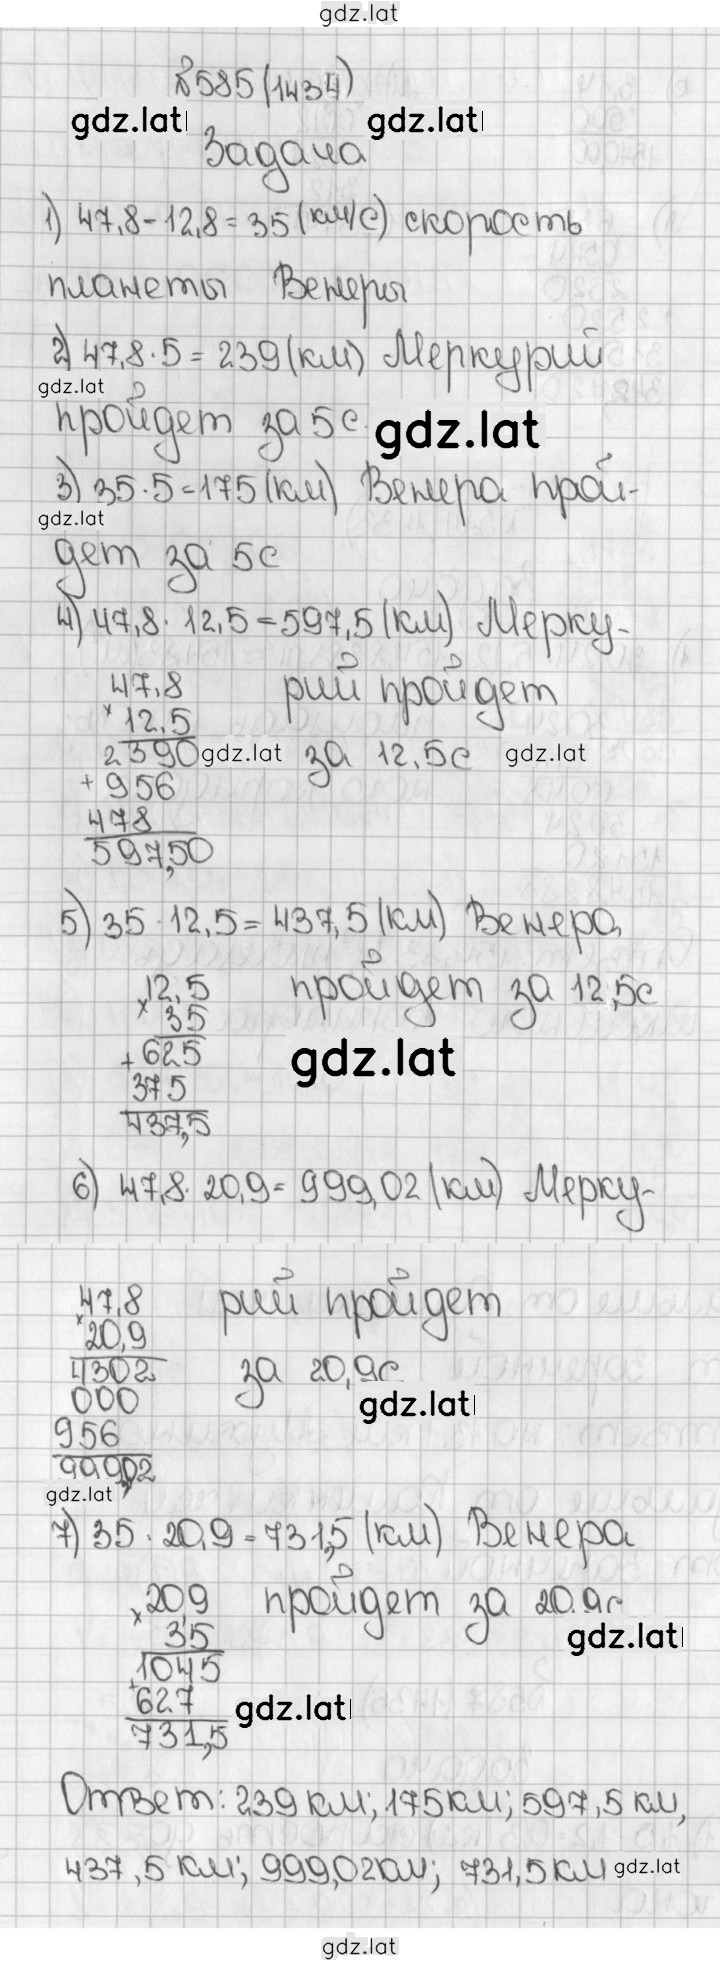 gdz.lat
№585(1434)
gdz.lat gdz.lat
Задача
1) 47,8-12,8=35(км/с) скорость
планеты Венеры
2) 47,8·5=239(км) Меркурий
gdz.lat
пройдет за 5с gdz.lat
3) 35·5=175(км) Венера прой-
gdz.lat
дет за 5с
4) 47,8·12,5=597,5(км) Мерку-
47,8 рий пройдет
× 12,5
2390 gdz.lat за 12,5с gdz.lat
+ 956
478
597,50
5) 35·12,5=437,5(км) Венера
12,5 пройдет за 12,5с
× 35
+ 625 gdz.lat
375
437,5
6) 47,8·20,9=999,02(км) Мерку-
47,8 рий пройдет
× 20,9
4302 за 20,9с
000 gdz.lat
956
999,02
gdz.lat
7) 35·20,9=731,5(км) Венера
20,9 пройдет за 20,9с
× 35 gdz.lat
1045
+ 627 gdz.lat
731,5
Ответ: 239км; 175км; 597,5км,
437,5км; 999,02км; 731,5км gdz.lat
gdz.lat